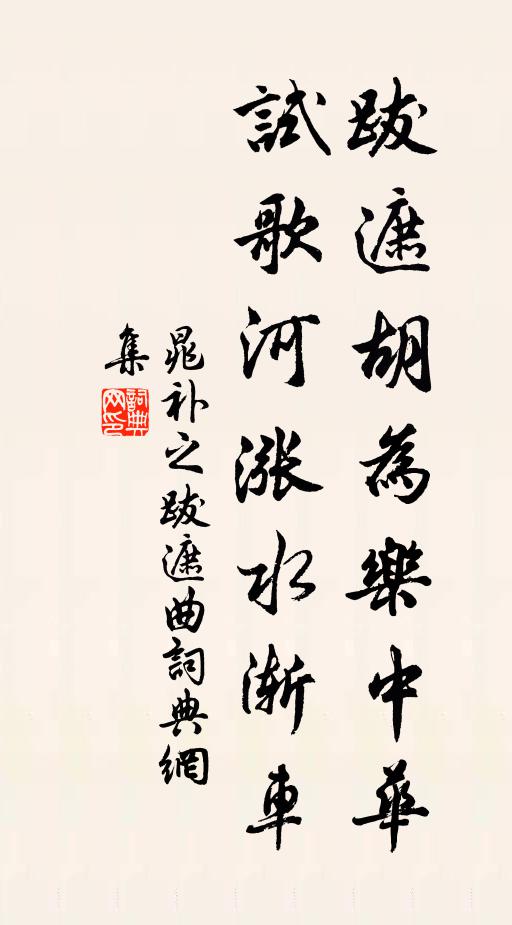 跋遮胡為樂中華
試歌河漲水漸車
晁补之跋遮曲詞典網
集
詞典
网印